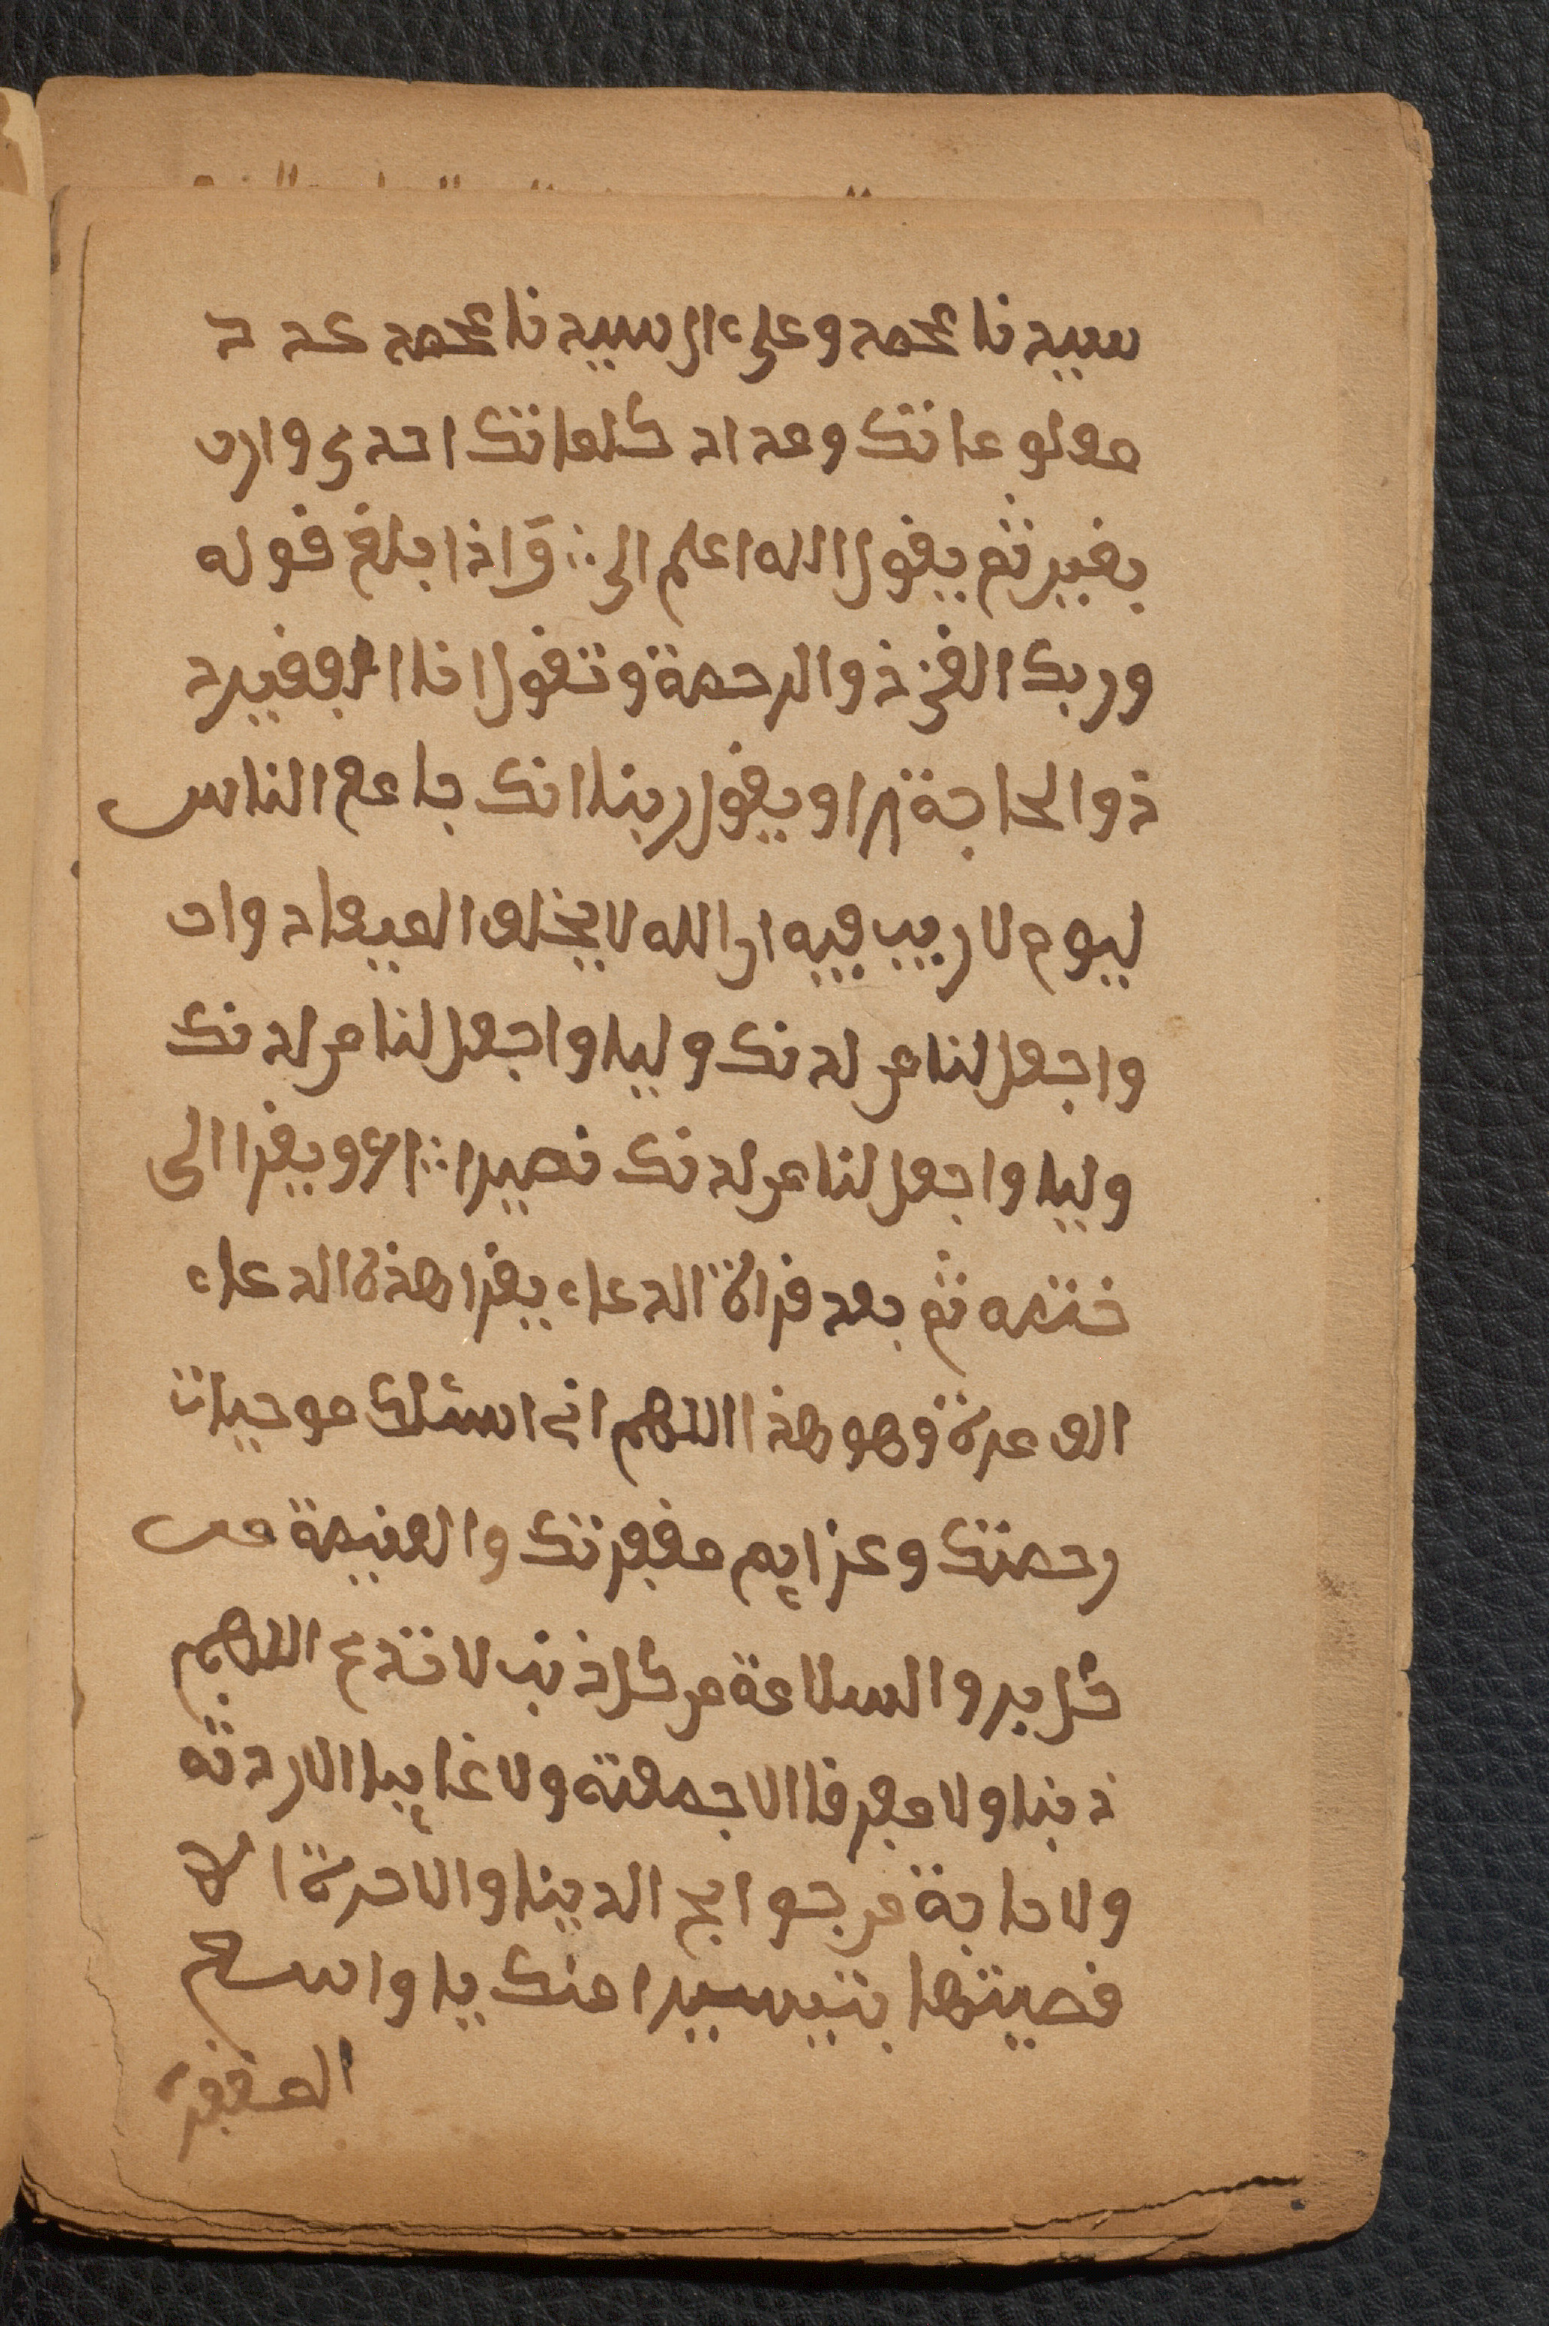 سيدنا محمد وعلى ءال سيدنا محمد عدد
معلوماتك ومداد كلماتك احدى وارب
بغير ثم يقول الله اعلم الى ∴ وَاذا بلغ قوله
وربك الغني ذوالرحمة وتقول انا الفقيرد
ذوالحاجة ٣ او يقول ربنا انك جامع الناس
ليوم لا ريب فيه ان الله لا يخلف الميعاد وان
واجعل لنا من لدنك وليا واجعل لنا من لدنك
وليا واجعل لنا من لدنك نصيرا ∴ ويقرا الى
ختمه ثم بعد قراة الدعاء يقرا هذه الدعاء
الف عرة وهو هذا اللهم اني اسئلك موجبات
رحمتك وعزايم مغفرتك والغنيمة من
كل بر والسلامة من كل ذنب لا تدع اللهم
ذنبا ولا مفرقا الا جمعته ولا غايبا الا ردته
ولا حاجة من حوايج الدينا والاخرة الا
قضيتها بتيسيرا منك يا واسع
المغفرة